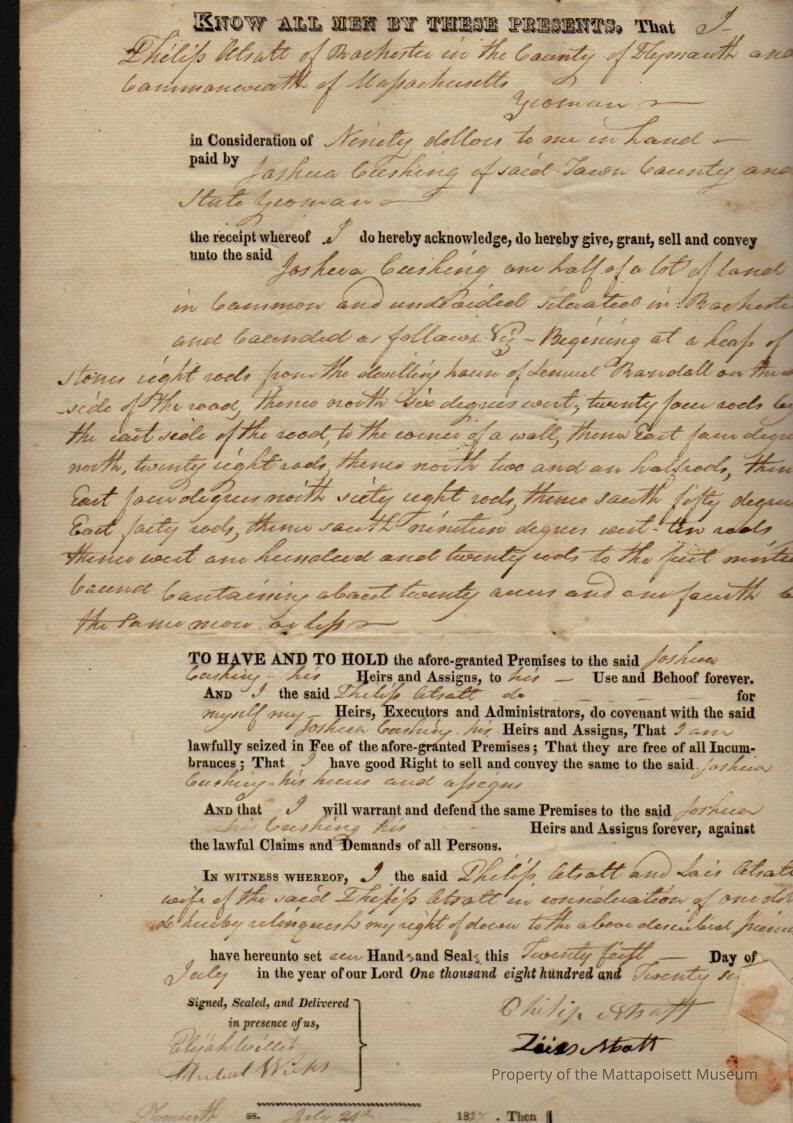 KNOW ALL MEN BY THESE PRESENTS, That I
Philip Atsatt of Rochester in the County of Plymouth and
Commonwealth of Massachusetts
Yeoman
in Consideration of Ninety dollars to me in hand
paid by
Joshua Cushing of said Town County and
State Yeoman
the receipt whereof I do hereby acknowledge, do hereby give, grant, sell and convey
unto the said
Joshua Cushing one half of a lot of land
in Common and undivided situated in Rocheste
and bounded as follows Viz - Begining at a heap of
stones eight rods from the dwelling house of Lemuel Randall on the
side of the road, thence north six degrees west, twenty four rods by
the east side of the road, to the corner of a wall, thence East four degre
north, twenty eight rods, thence north two and an half rods, then
East four degrees north sixty eight rods, thence south fifty degree
East forty rods, thence south nineteen degrees west ten rods
thence west one hundred and twenty rods to the first
bound Containing about twenty acres and one fourth b
the same more or less
TO HAVE AND TO HOLD the afore-granted Premises to the said Joshua
Cushing - his Heirs and Assigns, to his Use and Behoof forever.
AND I the said Philip Atsatt do for
myself my Heirs, Executors and Administrators, do covenant with the said
Joshua Cushing his Heirs and Assigns, That I am
lawfully seized in Fee of the afore-granted Premises; That they are free of all Incum-
brances; That I have good Right to sell and convey the same to the said Joshua
Cushing his heirs and assigns
AND that I will warrant and defend the same Premises to the said Joshua
Cushing his Heirs and Assigns forever, against
the lawful Claims and Demands of all Persons.
IN WITNESS WHEREOF, I the said Philip Atsatt and Lois Atsatt
wife of the said Philip Atsatt in consideration of one
do hereby relinquish my right of dower to the above described
have hereunto set our Hands and Seals this Twenty first Day of
July in the year of our Lord One thousand eight hundred and Twenty se
Signed, Sealed, and Delivered
in presence of us,
Elijah Willis
Philip Atsatt
Lois Atsatt
Property of the Mattapoisett Museum
Plymouth ss. July 21st 18 . Then